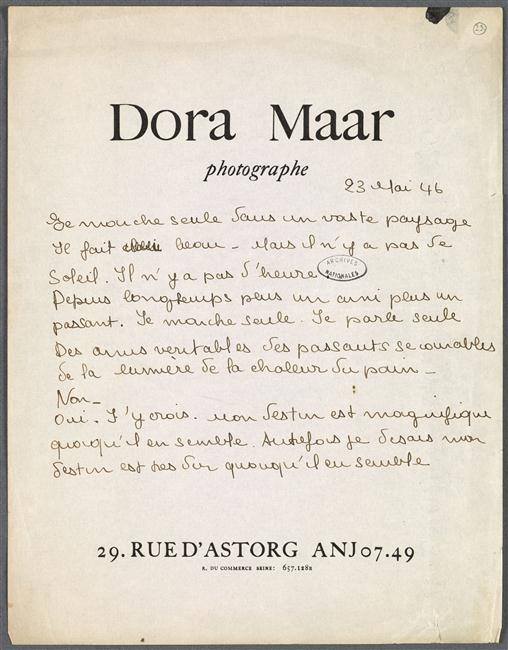 23
Dora Maar
photographe
23 Mai 46
Je marche seule dans un vaste paysage
Il fait beau – Mais il n'y a pas de
Soleil. Il n'y a pas d'heure.
ARCHIVES
NATIONALES
Depuis longtemps plus un ami plus un
passant. Je marche seule. Je parle seule
Des amis veritables des passants secourables
de la lumière de la chaleur du pain –
Non –
Oui. J'y crois. Mon destin est magnifique
quoiqu'il en semble. Autrefois je disais mon
destin est très dur quoiqu'il en semble
29. RUE D'ASTORG ANJ 07.49
R. DU COMMERCE SEINE: 657.1282